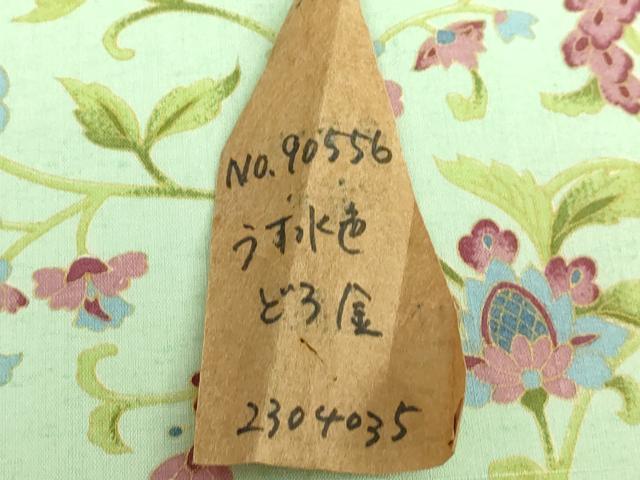 NO.90556
うす水色
どろ金
2304035